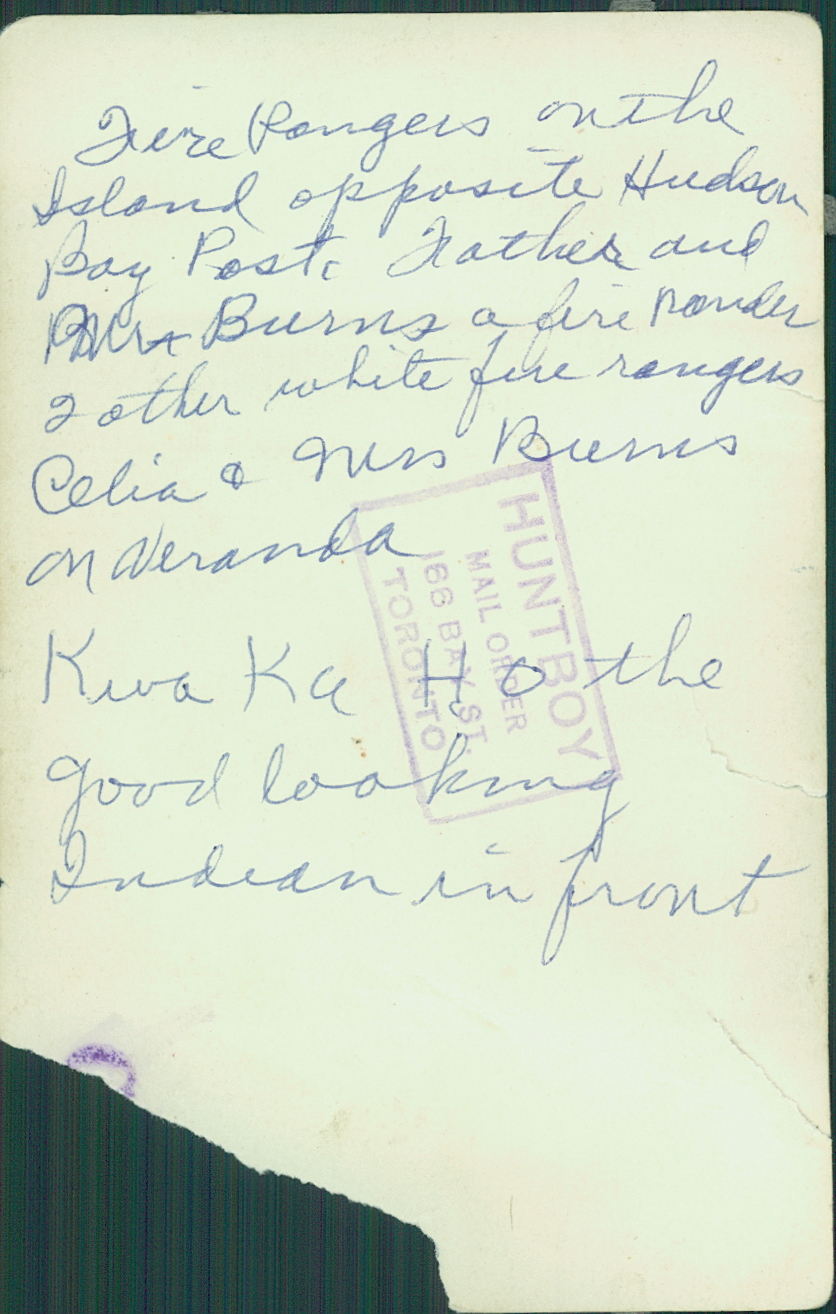 Fire Rangers on the
Island opposite Hudson
Bay Post. Father and
Mr Burns a fire rander
2 other white fire rangers
Celia & Mrs Burns
on Veranda
Kwa Ka Ho the
good looking
Indian in front
HUNTBOY
MAIL ORDER
166 BAY ST.
TORONTO